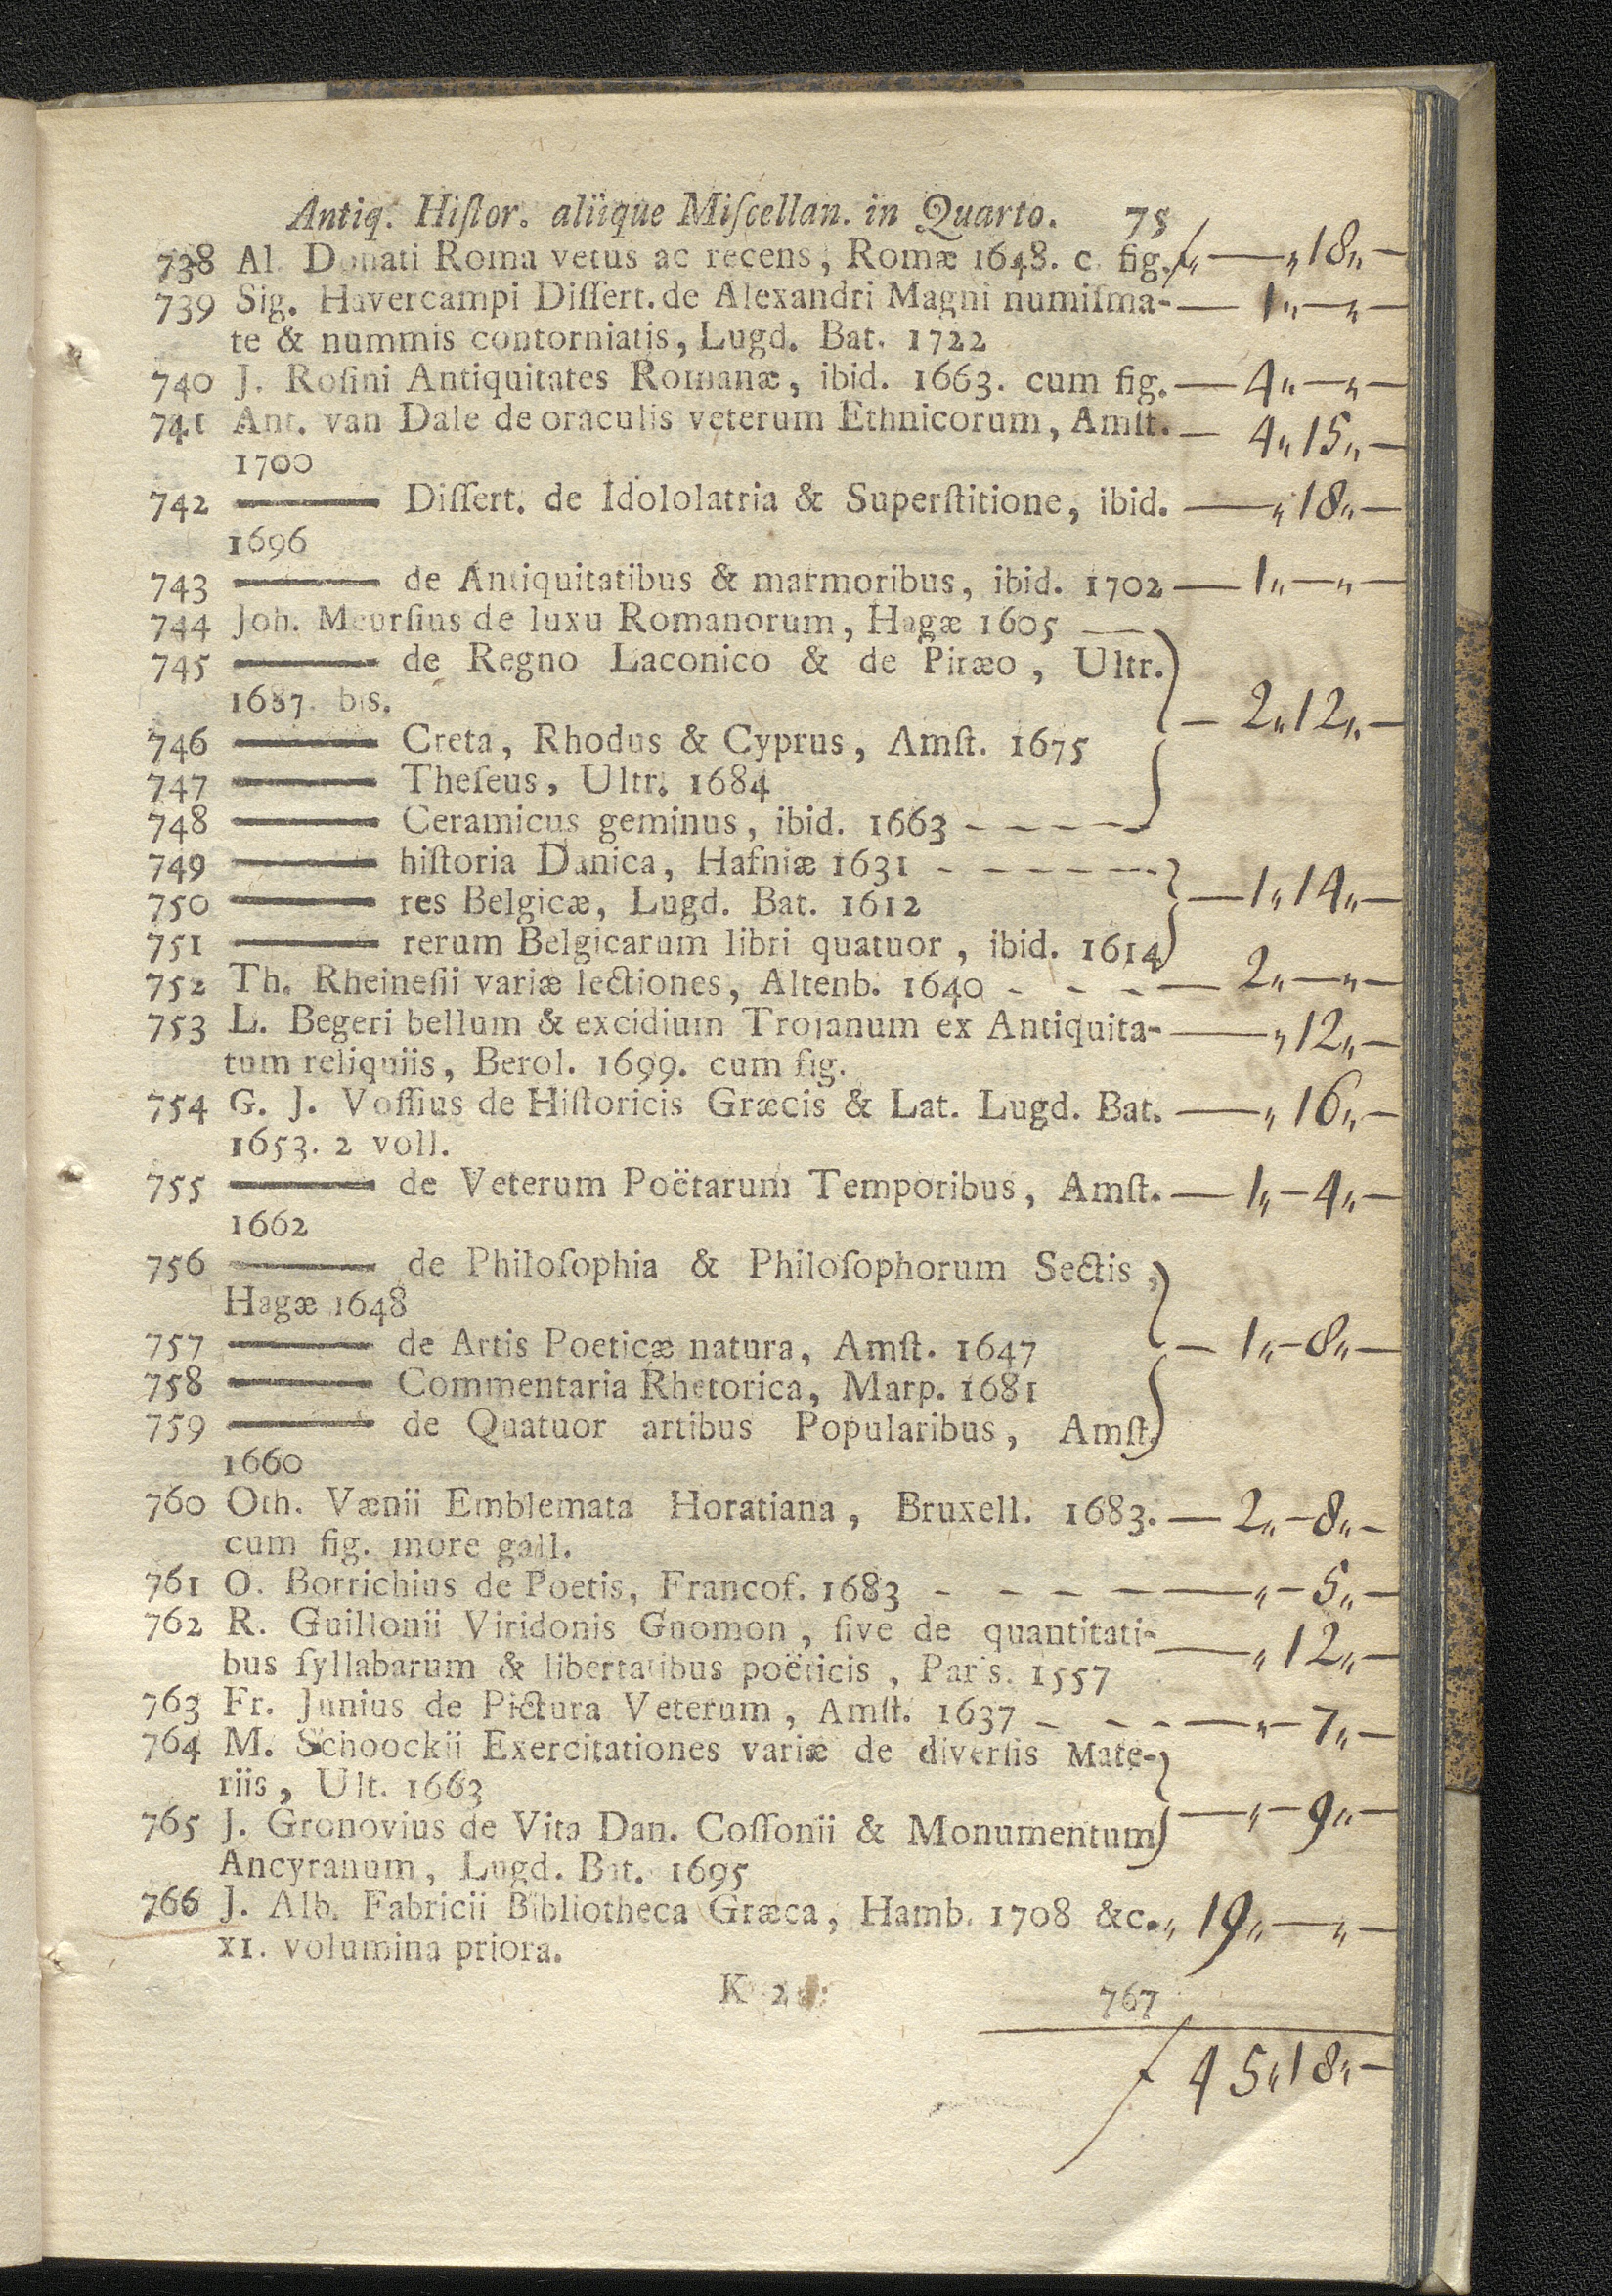 Antiq. Hiſtor. aliique Miſcellan. in Quarto. 75
738 Al. Donati Roma vetus ac recens, Romæ 1648. c. fig. ƒ„ — „ 18 „ —
739 Sig. Havercampi Diſſert. de Alexandri Magni numiſma- — 1 „ — „ —
te & nummis contorniatis, Lugd. Bat. 1722
740 J. Roſini Antiquitates Romanæ, ibid. 1663. cum fig. — 4 „ — „ —
741 Ant. van Dale de oraculis veterum Ethnicorum, Amſt. — 4 „ 15 „ —
1700
742 ——— Diſſert. de Idololatria & Superſtitione, ibid. — „ 18 „ —
1696
743 ——— de Antiquitatibus & marmoribus, ibid. 1702 — 1 „ — „ —
744 Joh. Meurſius de luxu Romanorum, Hagæ 1605 —
745 ——— de Regno Laconico & de Piræo, Ultr.
1687. bis. — 2 „ 12 „ —
746 ——— Creta, Rhodus & Cyprus, Amſt. 1675
747 ——— Theſeus, Ultr. 1684
748 ——— Ceramicus geminus, ibid. 1663 - - - -
749 ——— hiſtoria Danica, Hafniæ 1631 - - - - - -
750 ——— res Belgicæ, Lugd. Bat. 1612 — 1 „ 14 „ —
751 ——— rerum Belgicarum libri quatuor, ibid. 1614
752 Th. Rheineſii variæ lectiones, Altenb. 1640 - - - — 2 „ — „ —
753 L. Begeri bellum & excidium Trojanum ex Antiquita- — „ 12 „ —
tum reliquiis, Berol. 1699. cum fig.
754 G. J. Voſſius de Hiſtoricis Græcis & Lat. Lugd. Bat. — „ 16 „ —
1653. 2 voll.
755 ——— de Veterum Poëtarum Temporibus, Amſt. — 1 „ — 4 „ —
1662
756 ——— de Philoſophia & Philoſophorum Sectis,
Hagæ 1648
757 ——— de Artis Poeticæ natura, Amſt. 1647 — 1 „ — 8 „ —
758 ——— Commentaria Rhetorica, Marp. 1681
759 ——— de Quatuor artibus Popularibus, Amſt.
1660
760 Oth. Vænii Emblemata Horatiana, Bruxell. 1683. — 2 „ — 8 „ —
cum fig. more gall.
761 O. Borrichius de Poetis, Francof. 1683 - - - - — „ — 5 „ —
762 R. Guillonii Viridonis Gnomon, ſive de quantitati- — „ 12 „ —
bus ſyllabarum & libertatibus poëticis, Paris. 1557
763 Fr. Junius de Pictura Veterum, Amſt. 1637 - - - — „ — 7 „ —
764 M. Schoockii Exercitationes variæ de diverſis Mate-
riis, Ult. 1663
765 J. Gronovius de Vita Dan. Coſſonii & Monumentum — „ — 9 „ —
Ancyranum, Lugd. Bat. 1695
766 J. Alb. Fabricii Bibliotheca Græca, Hamb. 1708 &c. „ 19 „ — „ —
XI. volumina priora.
K 2 767
ƒ 45 „ 18 „ —